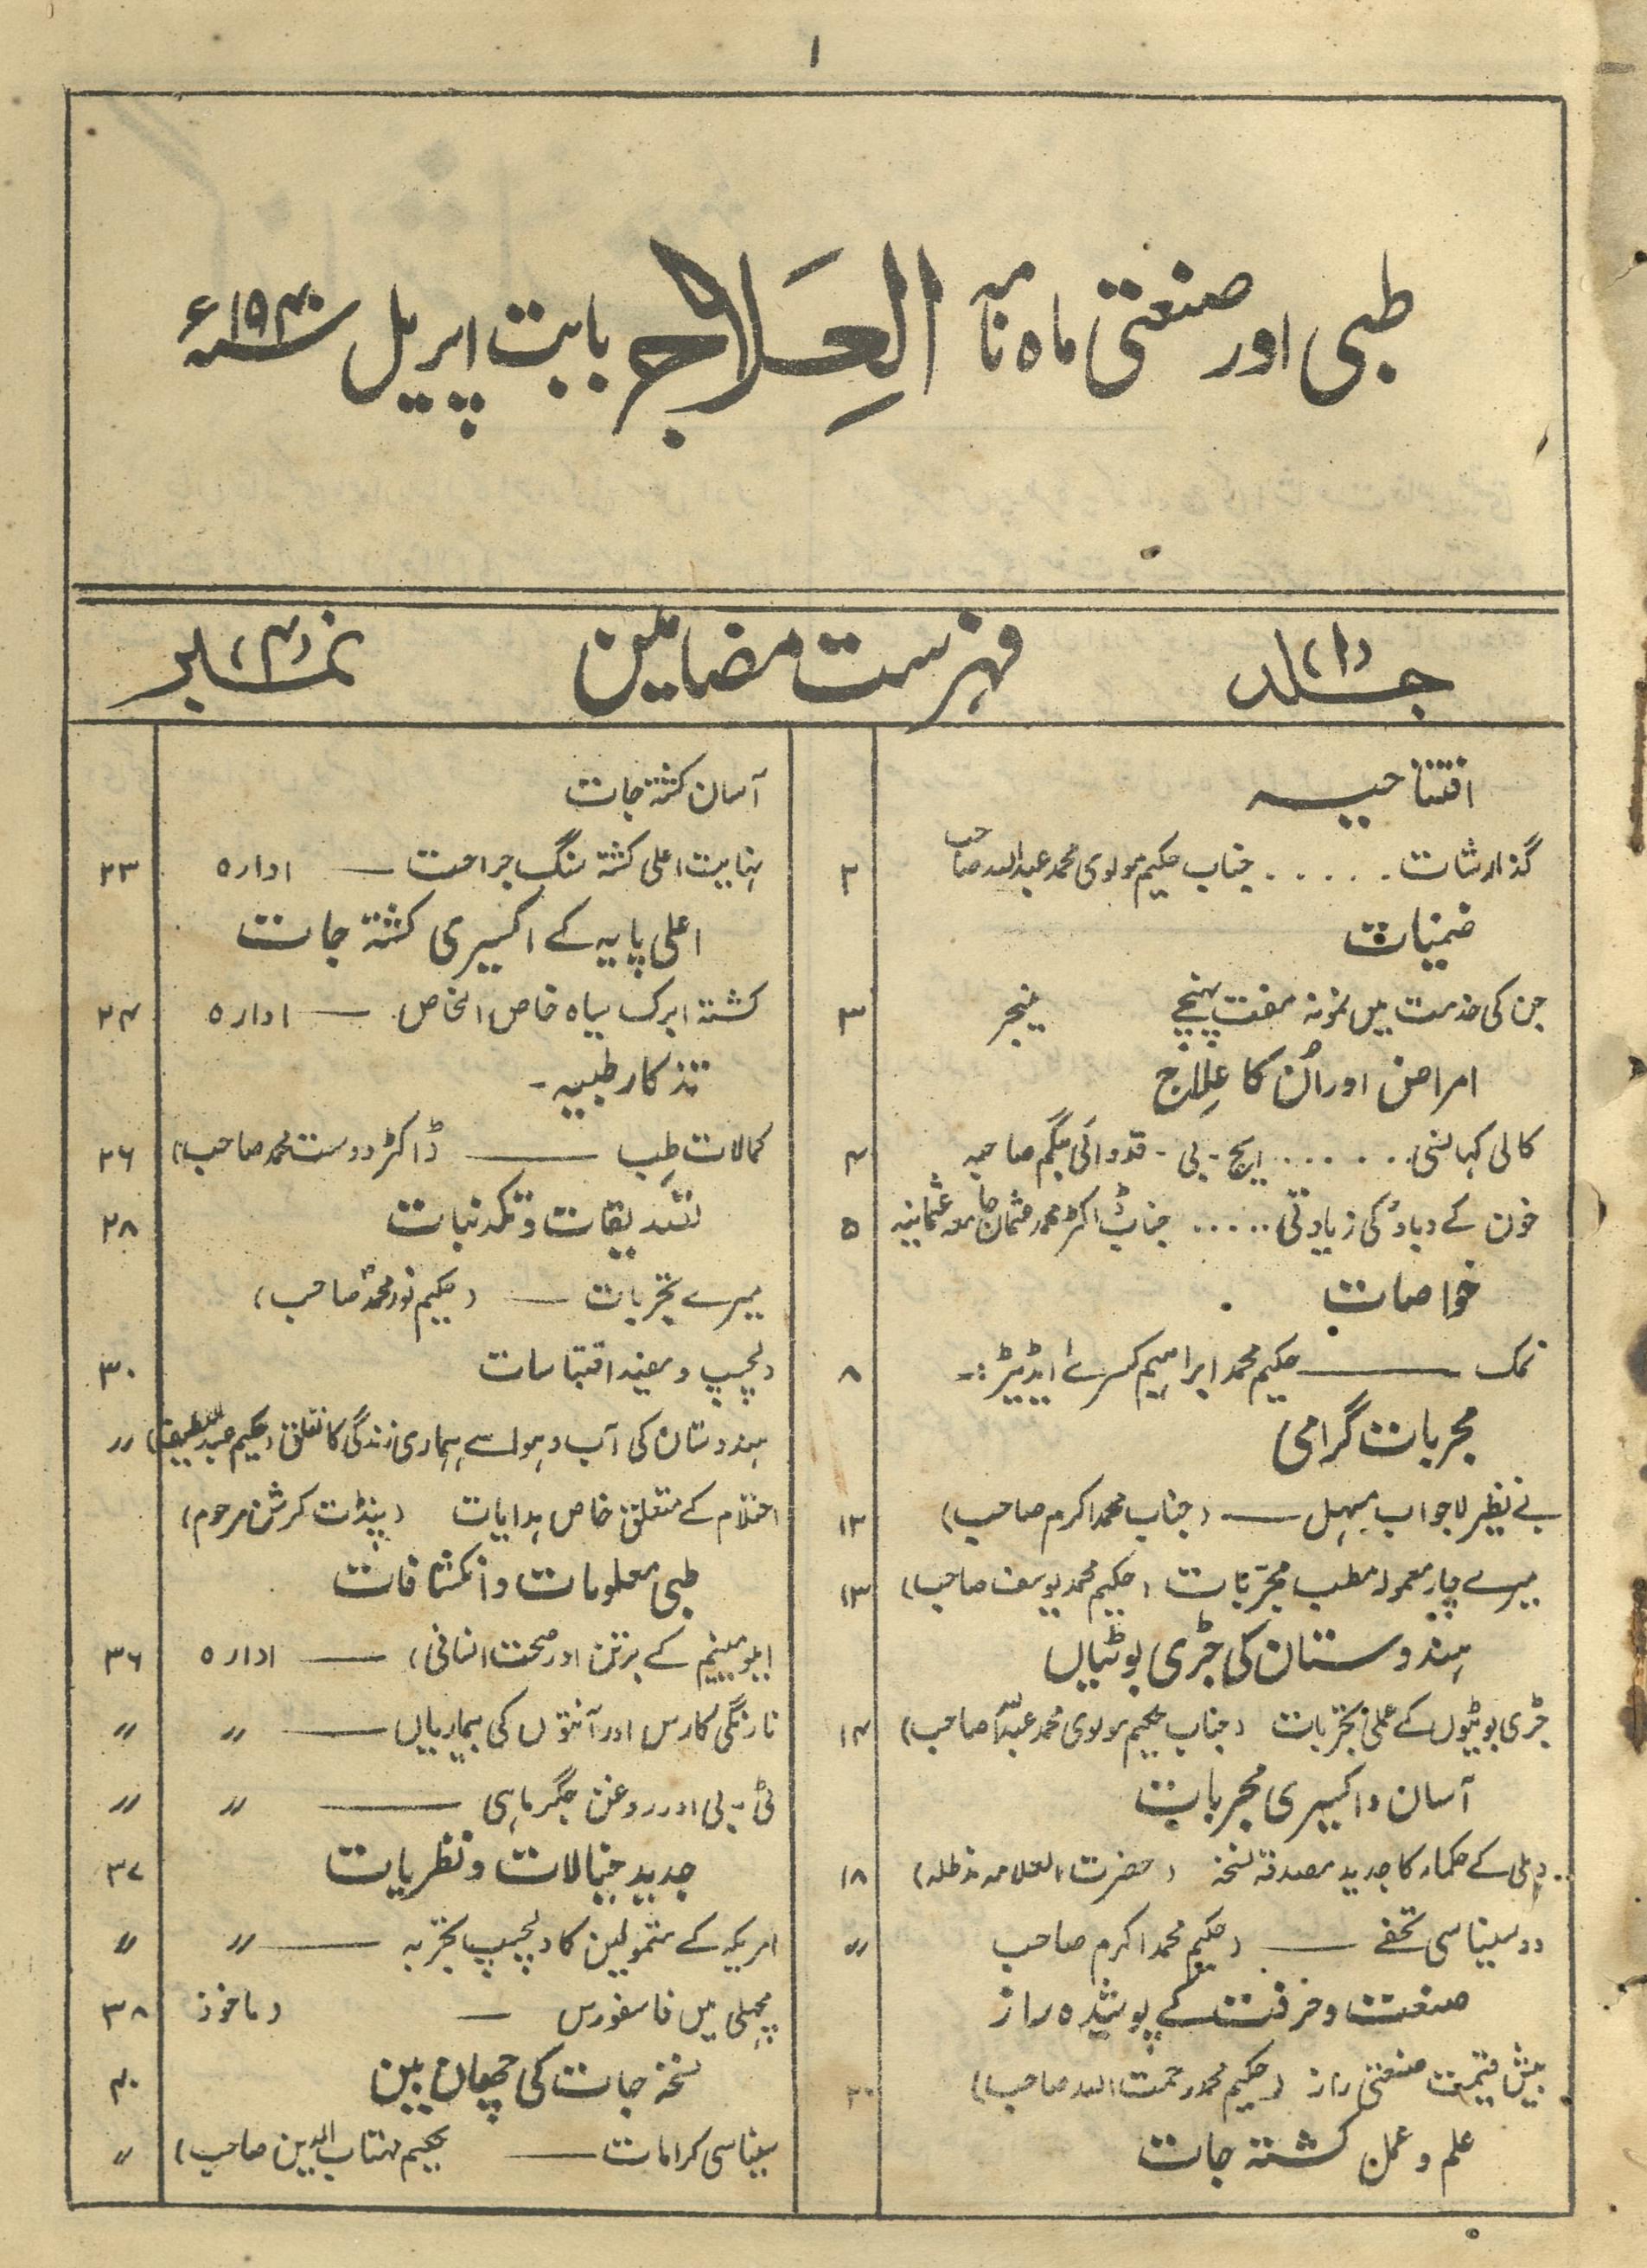 ۱
طبی اور صنعتی ماہ نامہ العِلاج بابت اپریل سنہ ۱۹۴۰ء
جلد (۱) فہرست مضامین نمبر (۴)
افتتاحیہ
گذارشات . . . . . جناب حکیم مولوی محمد عبداللہ صاحب ۲
ضمنیات
جن کی خدمت میں نمونہ مفت پہنچے منیجر ۳
امراض اور اُن کا عِلاج
کالی کہانسی . . . . . . ایچ - بی - قدوائی بیگم صاحبہ ۴
خون کے دباؤ کی زیادتی . . . . . جناب ڈاکٹر محمد عثمان جامعہ عثمانیہ ۵
خواصات
نمک —— حکیم محمد ابراہیم ایڈیٹر :- ۸
مجربات گرامی
بے نظیر لاجواب مسہل —— (جناب محمد اکرم صاحب) ۱۲
میرے چار معمول مطب مجرّبات (حکیم محمد یوسف صاحب) ۱۳
ہندوستان کی جڑی بوٹیاں
جڑی بوٹیوں کے عملی تجربات (جناب حکیم مولوی محمد عبداللہ صاحب) ۱۴
آسان و اکسیری مجربات
دہلی کے حکماء کا جدید مصدقہ نسخہ (حضرت العلامہ مدظلہ) ۱۸
دو سنیاسی تحفے —— (حکیم محمد اکرم صاحب 〃
صنعت و حرفت کے پوشیدہ راز
بیش قیمت صنعتی راز (حکیم محمد رحمت اللہ صاحب) ۲۰
علم و عمل کشتہ جات
آسان کشتہ جات
نہایت اعلی کشتہ سنگ جراحت —— ادارہ ۲۳
اعلی پایہ کے اکسیری کشتہ جات
کشتہ ابرک سیاہ خاص الخاص —— ادارہ ۲۴
تذکار طبیہ -
کمالات طِب —— ڈاکٹر دوست محمد صاحب) ۲۶
تصدیقات و تکذیبات ۲۸
میرے تجربات —— (حکیم نور محمد صاحب)
دلچسپ و مفید اقتباسات ۳۰
ہندوستان کی آب و ہوا سے ہماری زندگی کا تعلق (حکیم عبداللطیف) 〃
احتلام کے متعلق خاص ہدایات (پنڈت کرشن مرحوم)
طبی معلومات و انکشافات
ایلومینیم کے برتن اور صحت انسانی) —— ادارہ ۳۶
نارنگی کا رس اور آنتوں کی بیماریاں —— 〃 〃
ٹی - بی اور روغن جگر ماہی —— 〃 〃
جدید خیالات و نظریات ۳۷
امریکہ کے متمولین کا دلچسپ تجربہ —— 〃 〃
مچھلی میں فاسفورس — (ماخوذ ۳۸
نسخہ جات کی چھان بین ۴۰
سنیاسی کرامات —— حکیم مہتاب الدین صاحب) 〃